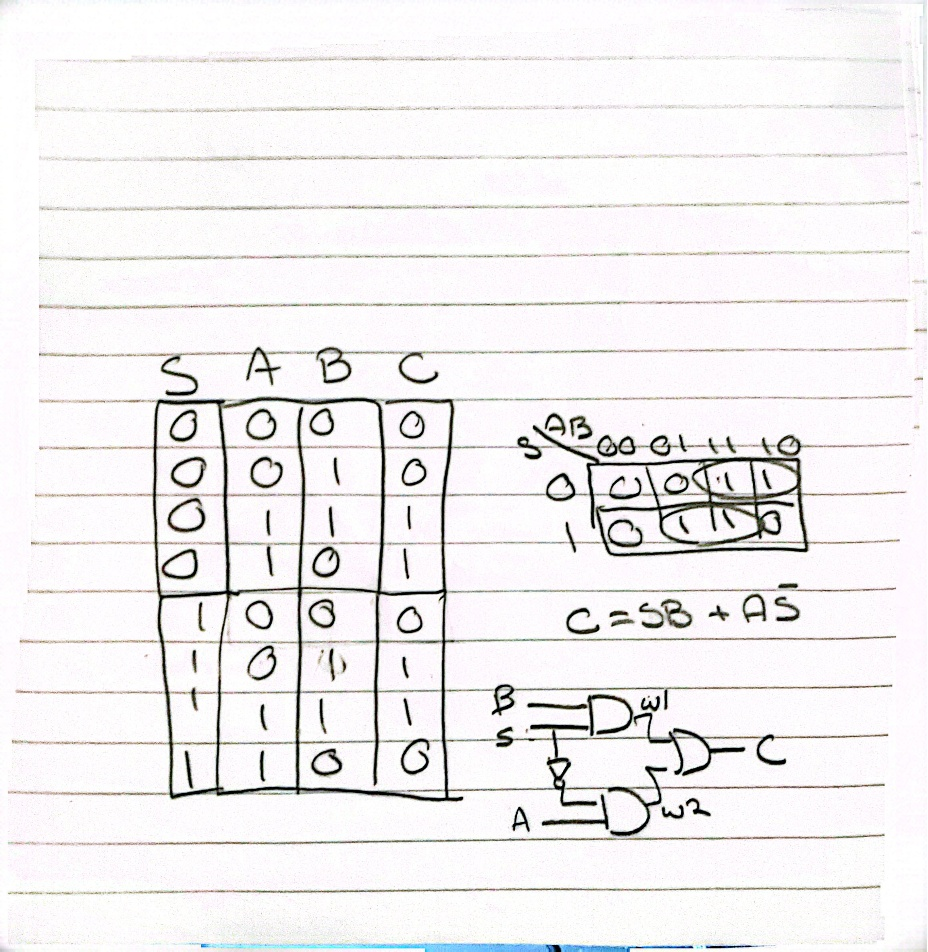 S A B C
0 0 0 0
0 0 1 0
0 1 1 1
0 1 0 1
1 0 0 0
1 0 1 1
1 1 1 1
1 1 0 0
S AB 00 01 11 10
0 0 0 1 1
1 0 1 1 0
C = SB + AS̄
B w1
S C
A w2